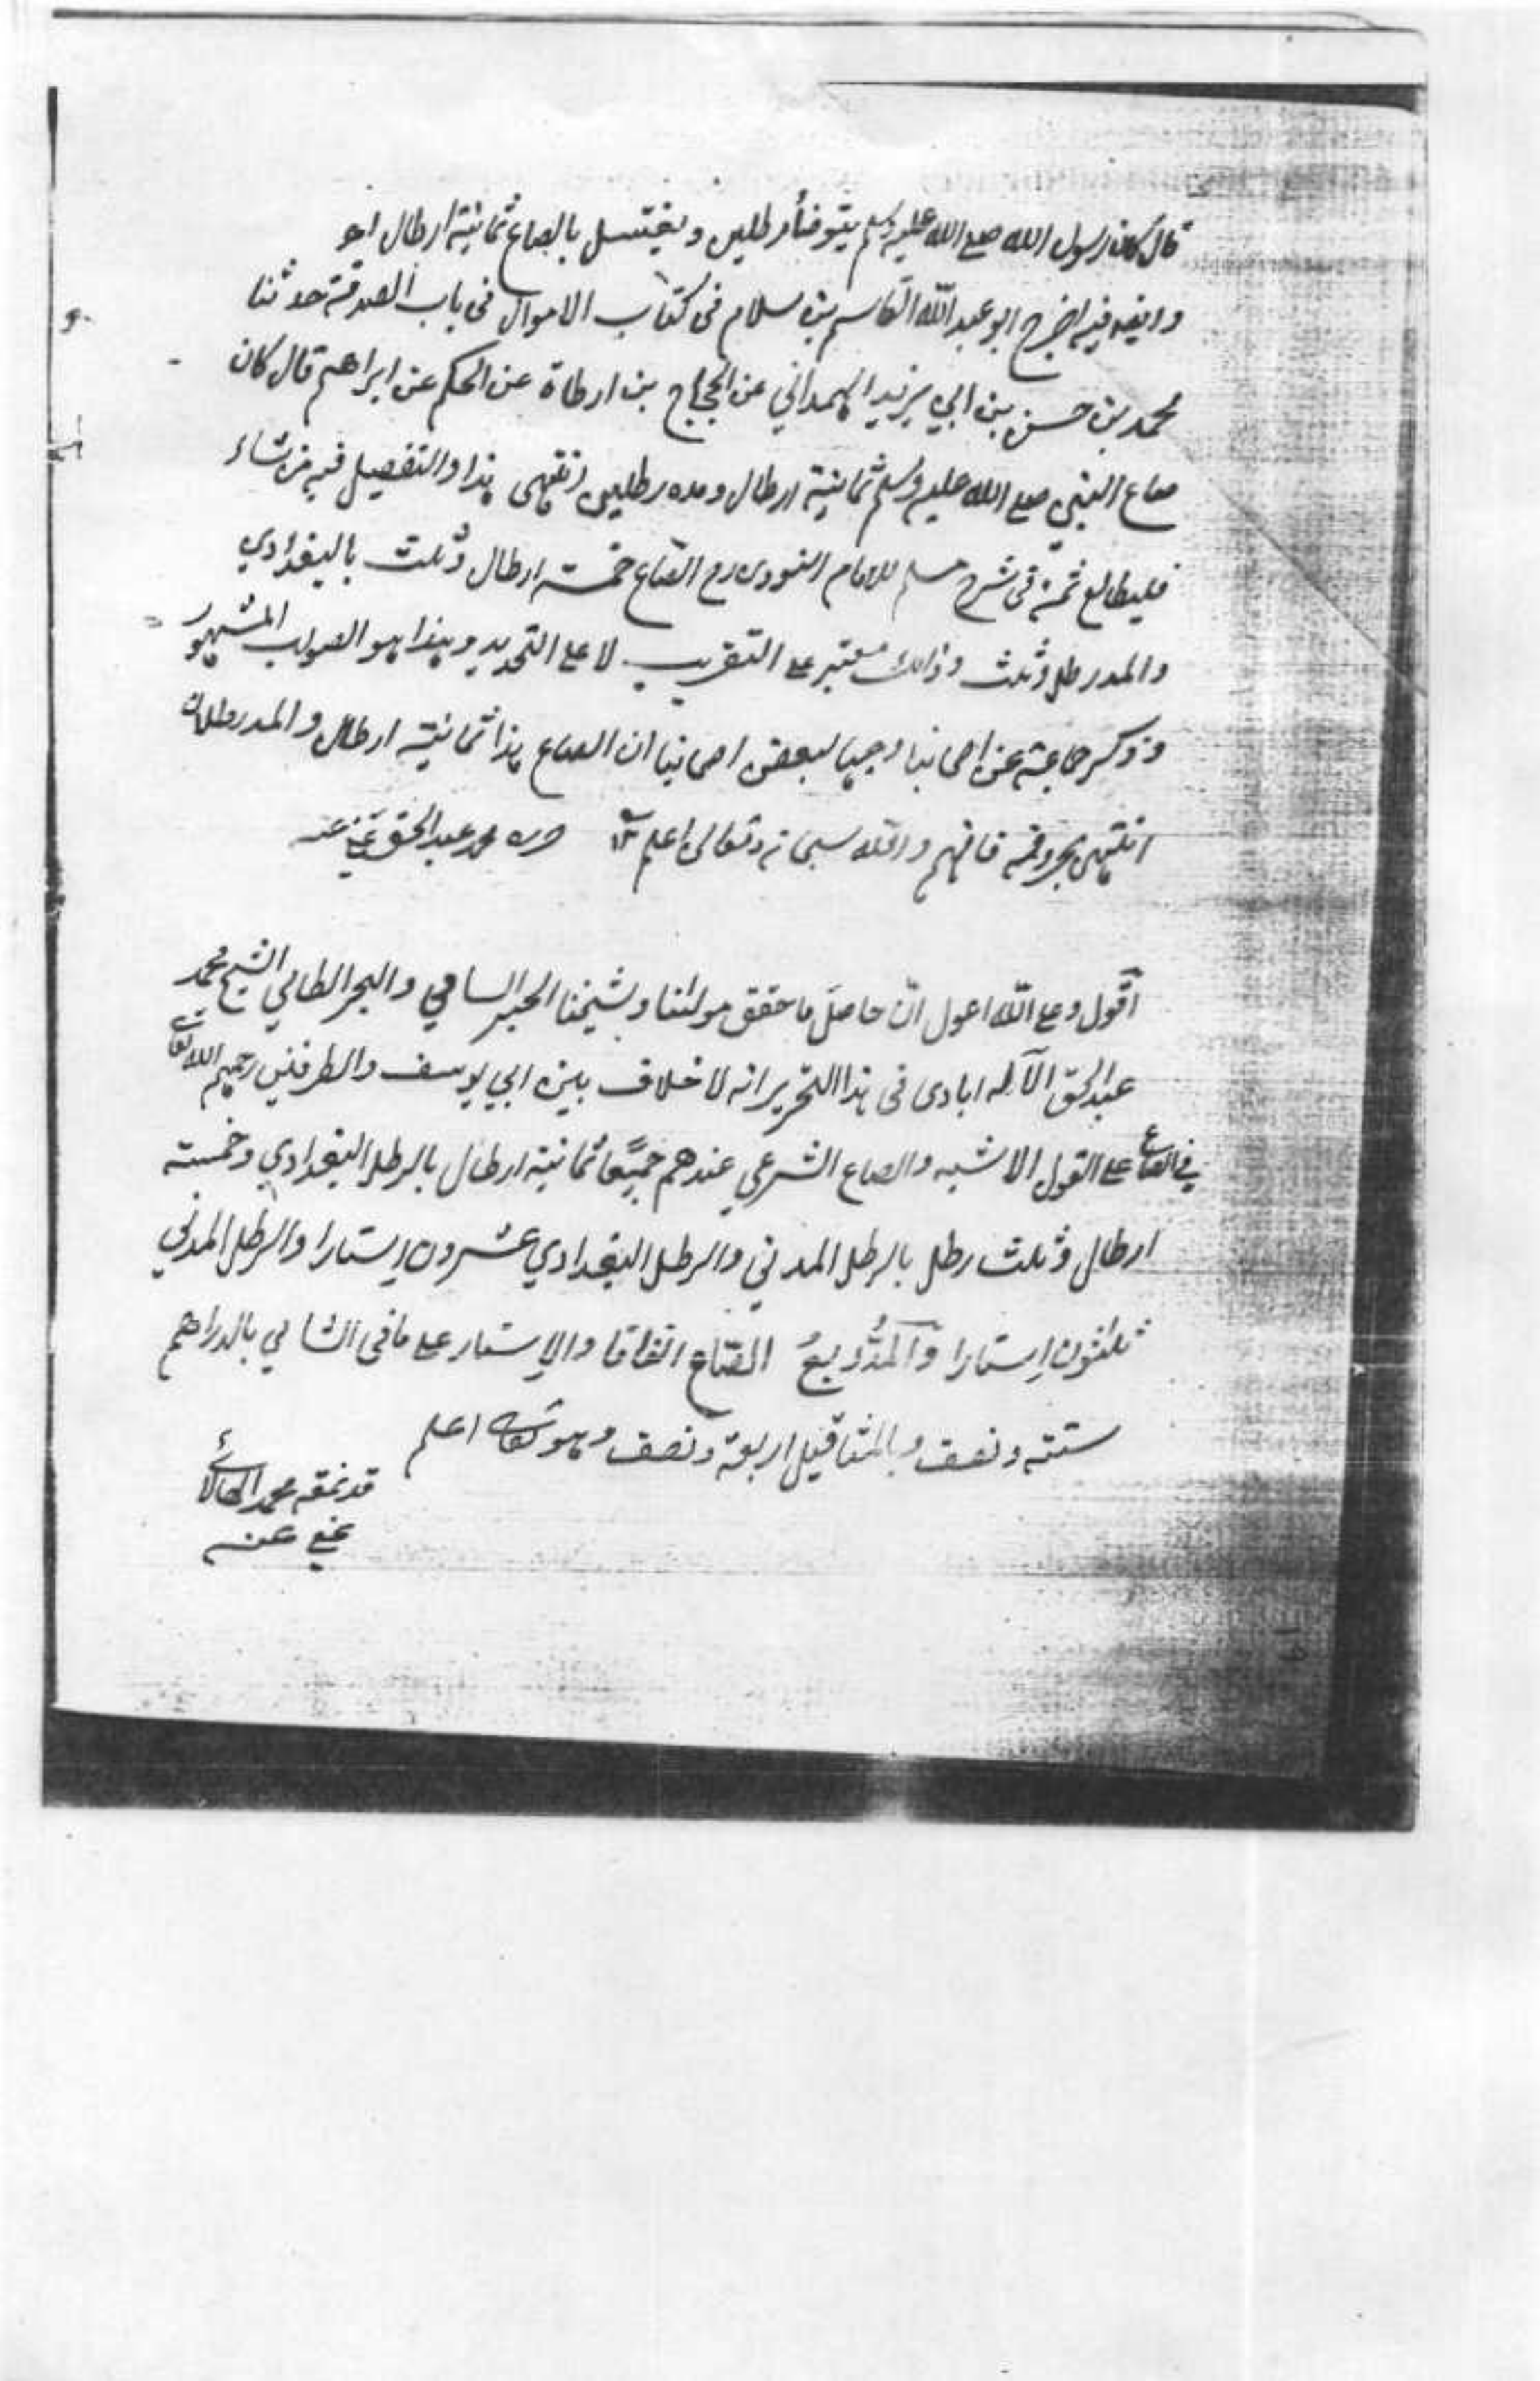 قال كان رسول الله صلے الله علیہ وسلم يتوضأ برطلين ويغتسل بالصاع ثمانية ارطال اهو
وايضا فيه اخرج ابو عبد الله القاسم بن سلام فى كتاب الاموال فى باب الصدقة حدثنا
محمد بن حسن بن ابي يزيد الهمداني عن الحجاج بن ارطاة عن الحكم عن ابراهيم قال كان
صاع النبي صلے الله علیہ وسلم ثمانية ارطال ومده رطلين انتهى هذا والتفصيل فيه من شاء
فليطالع ثمة فى شرح مسلم للامام النووى رح الصّاع خمسة ارطال وثلث بالبغدادي
والمد رطل وثلث وذالك معتبر علے التقريب لا علے التحديد وهذا هو الصواب المشهور
وذكر جماعة عن اصحابنا وجها لبعض اصحابنا ان الصاع هذا ثمانية ارطال والمد رطلان
انتهى بحروفه فافهم والله سبحانه وتعالى اعلم ١٢ حرره محمد عبد الحق عفي عنه
أقول وعلے الله اعول انّ حاصل ما حقق مولٰنا وشيخنا الحبر السامي والبحر الطامي الشيخ محمد
عبد الحق الآلٰه ابادى فى هذا التحرير انه لا خلاف بين ابي يوسف والطرفين رحمهم الله تعالے
في الصاع علے القول الاشبه والصاع الشرعي عندهم جميعًا ثمانية ارطال بالرطل البغدادي وخمسة
ارطال وثلث رطل بالرطل المدني والرطل البغدادي عشرون إستارا والرطل المدني
ثلٰثون إستارا والمُدُّ ربعُ الصّاع اتفاقا والإستار علے ما فى الشامي بالدراهم
ستة ونصف وبالمثاقيل اربعة ونصف وهو تعالے اعلم
قد نمقه محمد
عفي عنه